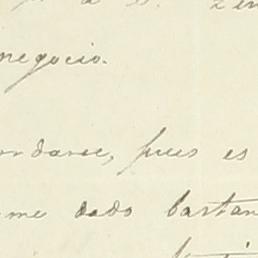 negocio.
ordarse, pues es
me dado bastan